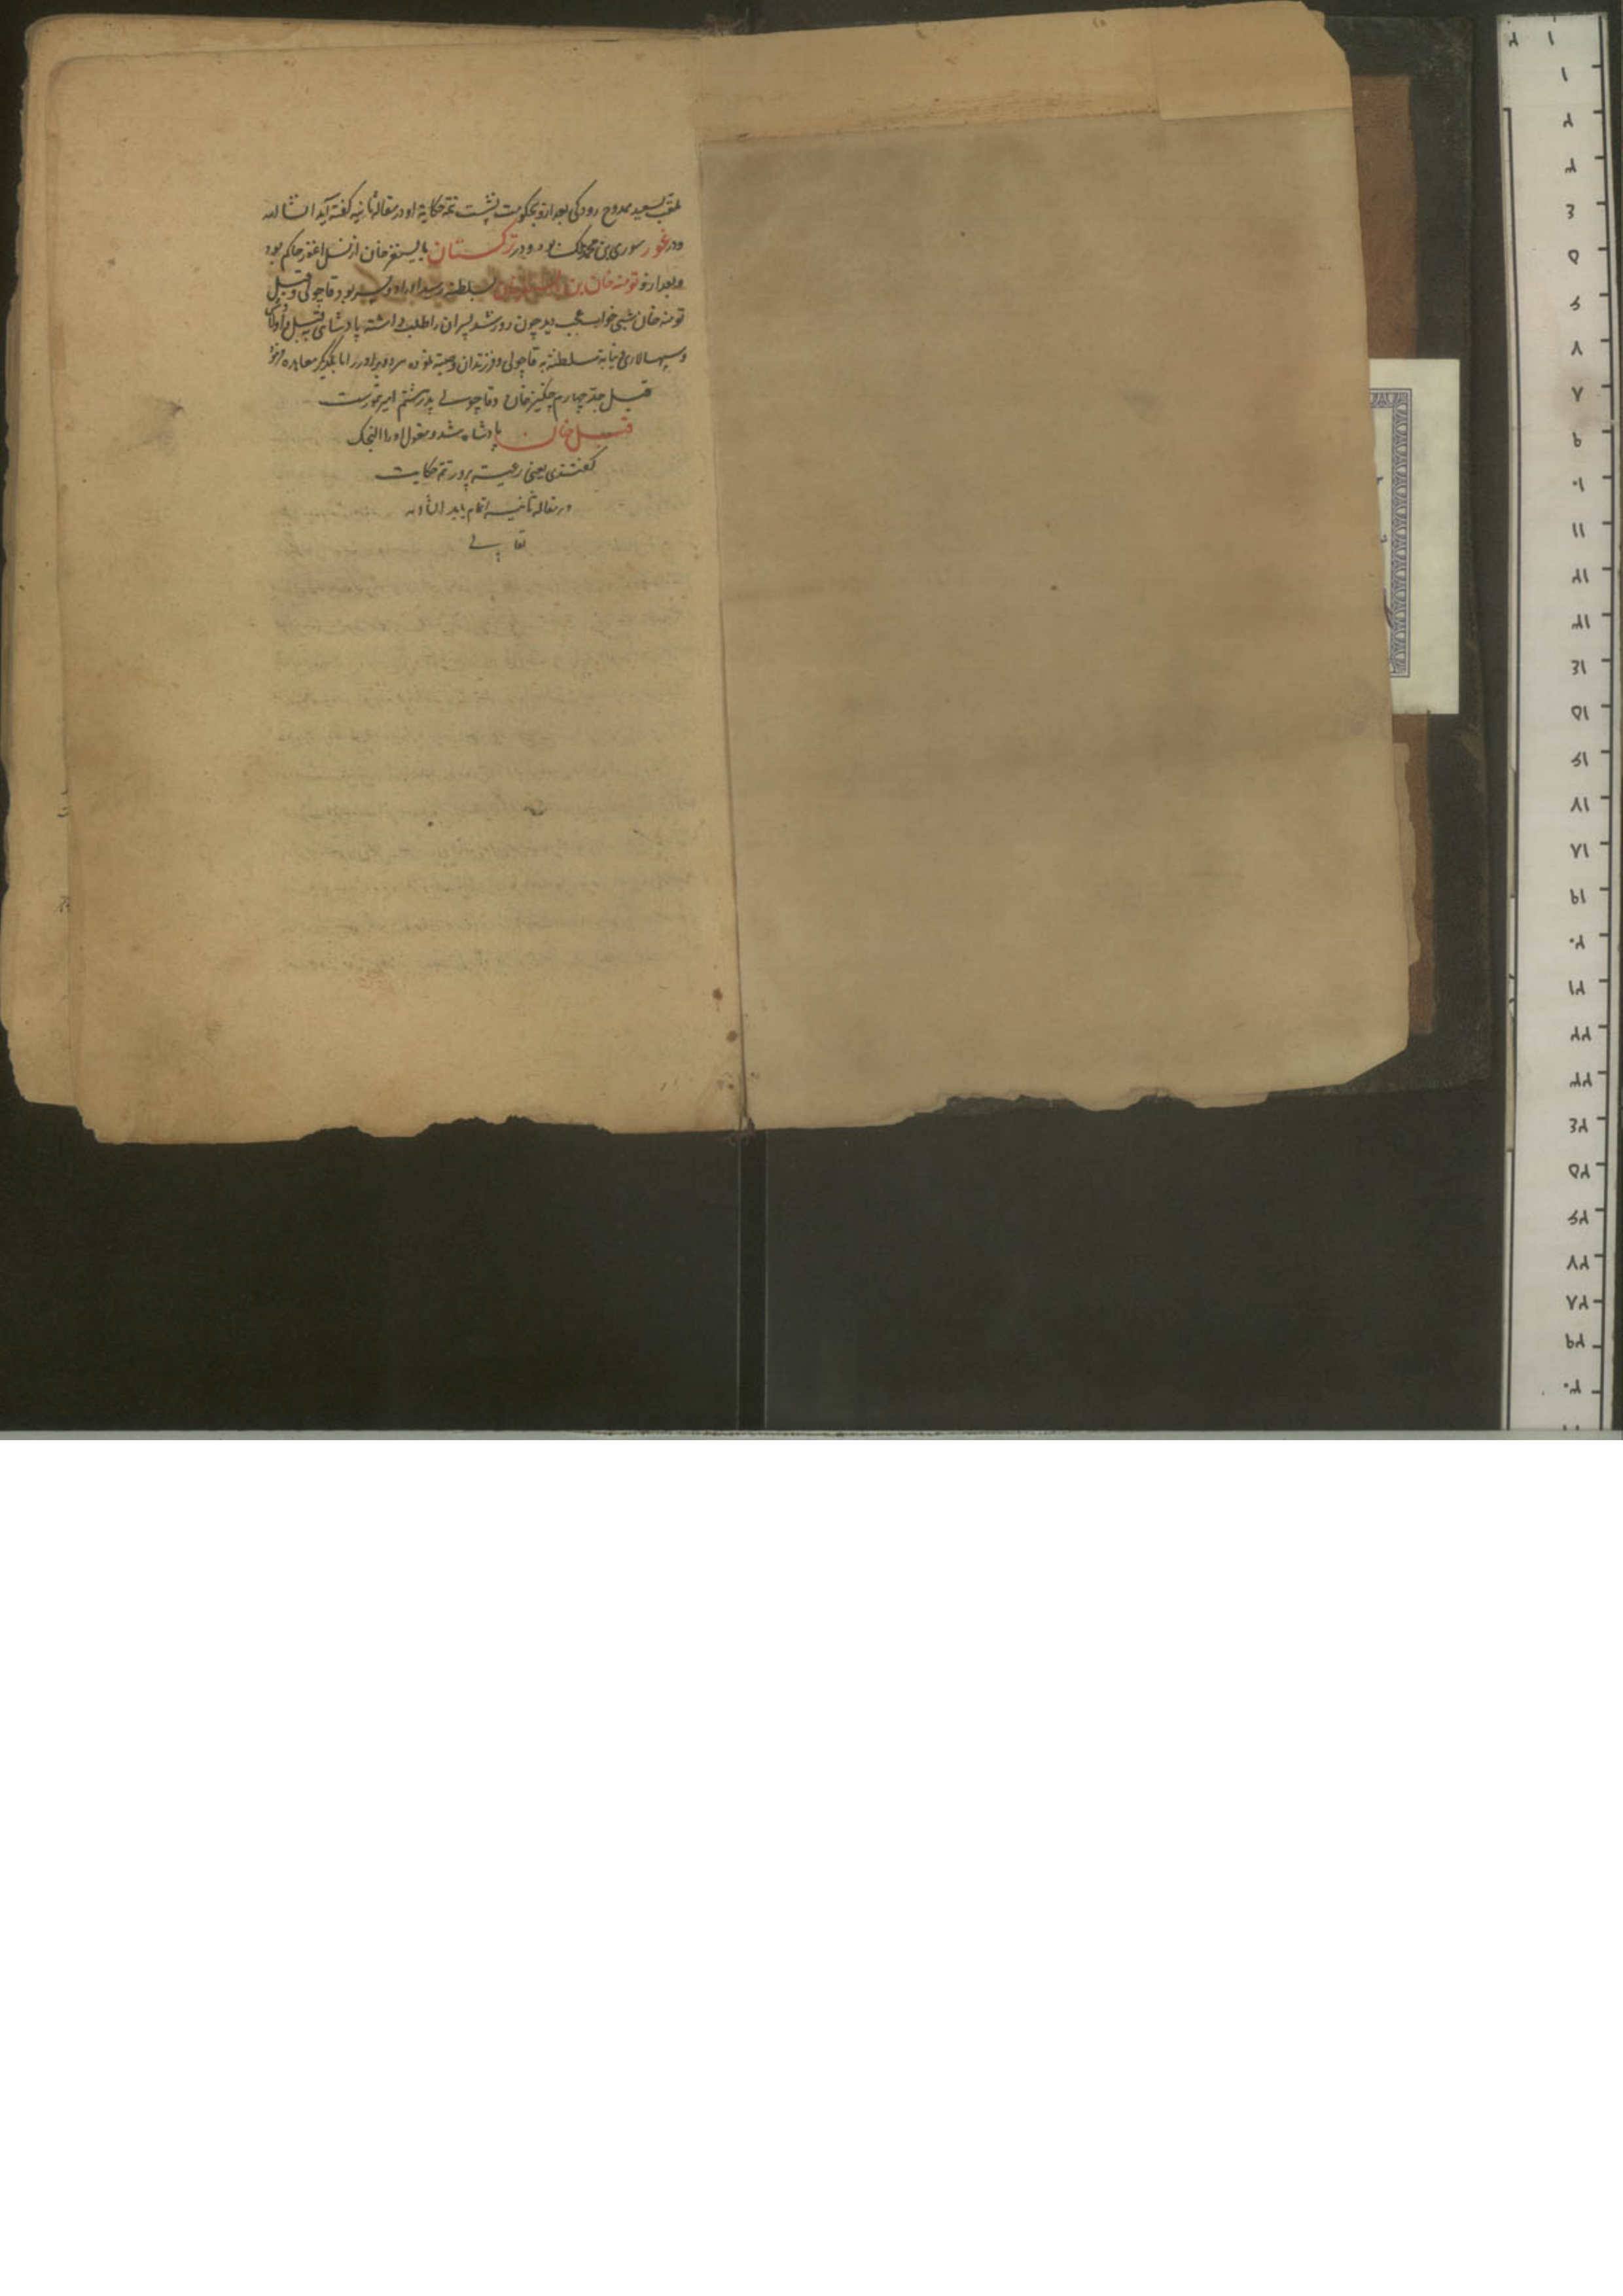 ملقب بسعید ممدوح رودکی بعد ازو بحکومت نشست تتمه حکایة او در مقاله ثانیه گفته آید انشا الله
و در غور سوری بن محمد ملک بود و در ترکستان بایسنغر خان از نسل اغز حاکم بود
و بعد ازو تومنه خان بن بسلطنة رسید او را دو پسر بود قاچولی و قبل
تومنه خان شبی خواب عجب دید چون روز شد پسران را طلب داشته پادشاهی بقبل و اولاد
و سپهسالاری و نیابة سلطنة به قاچولی و فرزندان وصیة نموده هر دو برادر را با یکدیگر معاهده فرمود
قبل جد چهارم چنگیز خان و قاچولی پدر هشتم امیر تیمورست
قبل خان پادشاه شد و مغول او را النجک
گفتندی یعنی رعیت پرور تتمه حکایت
در مقاله ثانیه اتمام یابد انشاء الله
تعالی